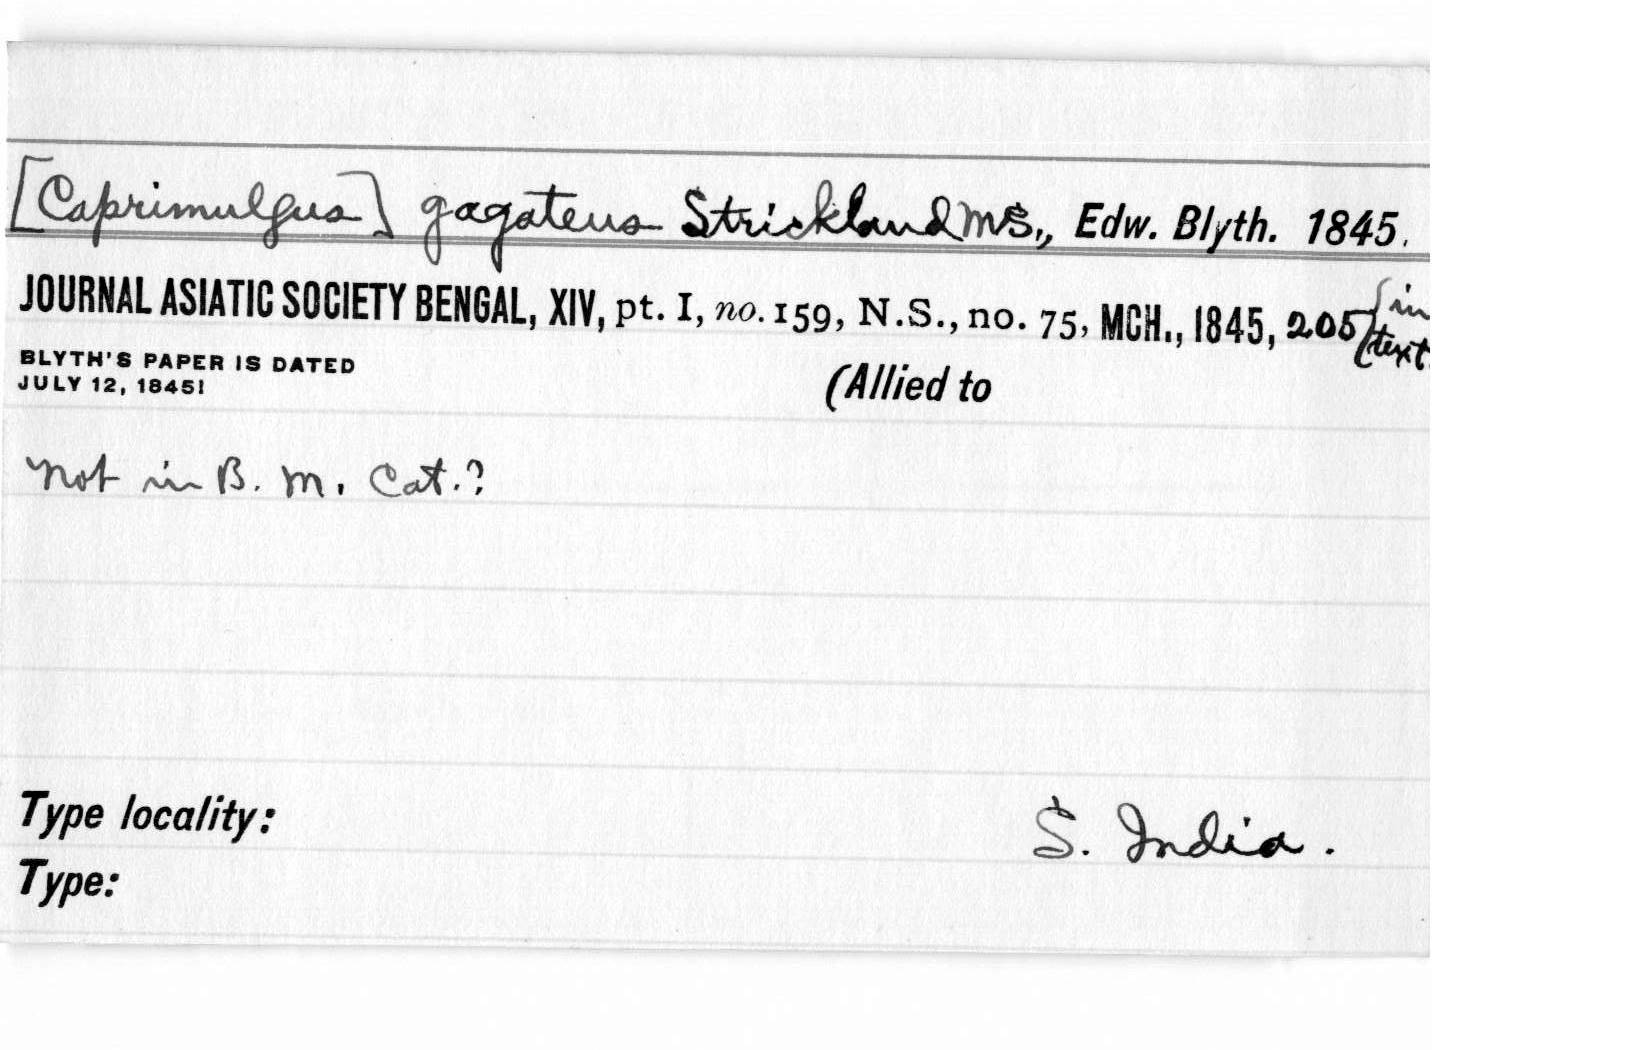 [Caprimulgus] gagateus Strickland MS., Edw. Blyth. 1845.
JOURNAL ASIATIC SOCIETY BENGAL, XIV, pt. I, no. 159, N.S., no. 75, MCH., 1845, 205 {in text.
BLYTH'S PAPER IS DATED
JULY 12, 1845!
(Allied to
Not in B. M. Cat.?
Type locality: S. India.
Type: